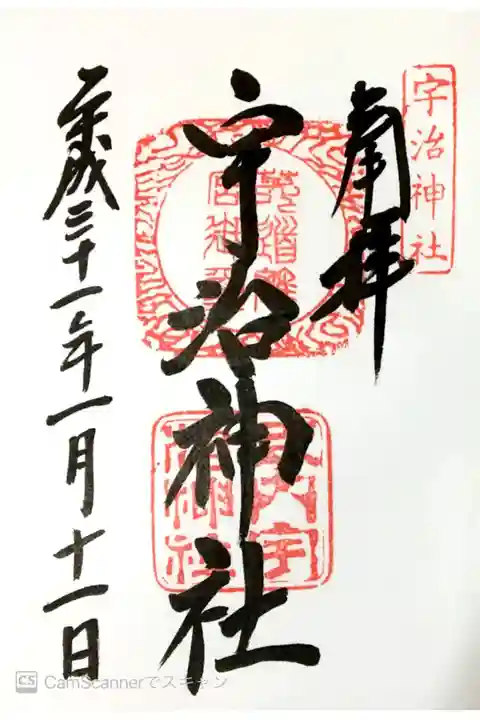 宇治神社
奉拝
宇治神社
平成三十一年一月十一日
CS CamScannerでスキャン